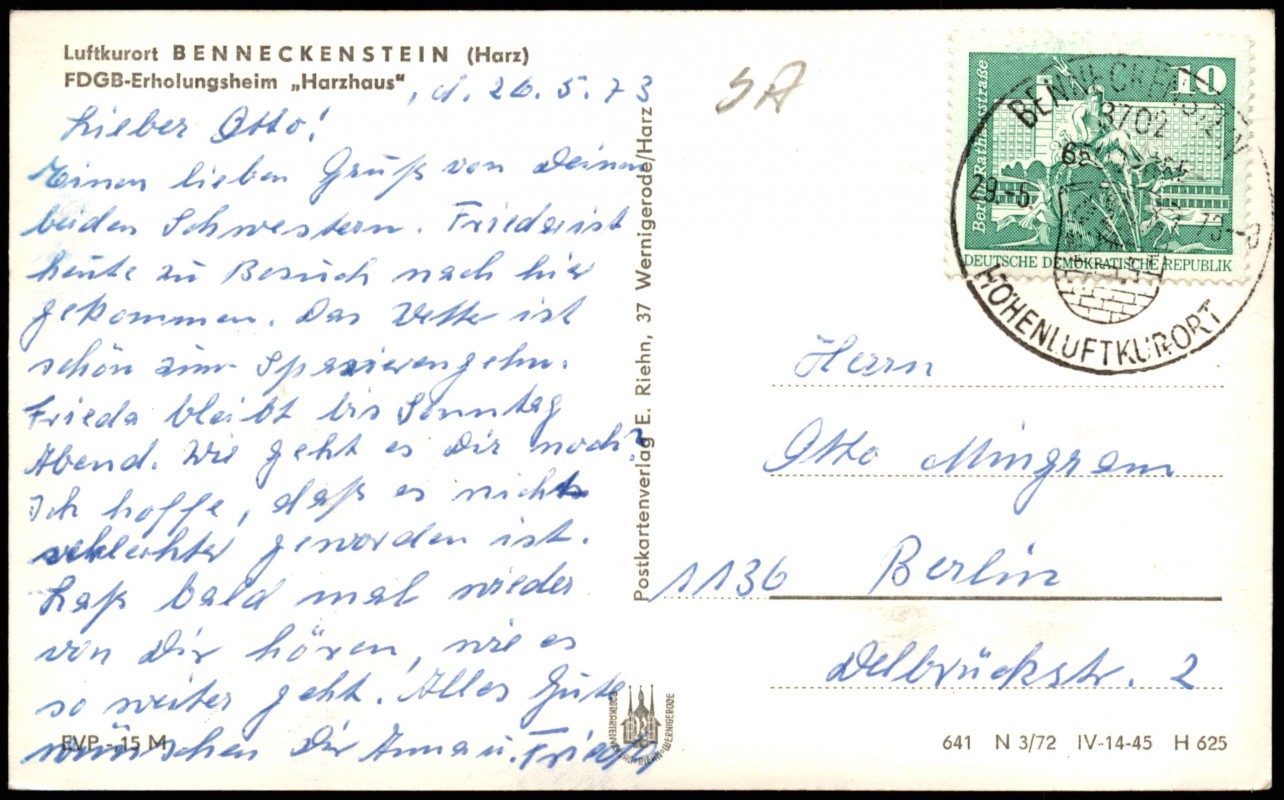 Luftkurort BENNECKENSTEIN (Harz)
FDGB-Erholungsheim „Harzhaus"
, d. 26. 5. 73
Lieber Otto!
Einen lieben Gruß von Deinen
beiden Schwestern. Frieda ist
heute zu Besuch nach hier
gekommen. Das Wetter ist
schön zum Spazierengehn.
Frieda bleibt bis Sonntag
Abend. Wie geht es Dir noch?
Ich hoffe, daß es nicht
schlechter geworden ist.
Laß bald mal wieder
von Dir hören, wie es
so weiter geht. Alles Gute
wünschen Dir Anna u. Frieda
EVP -.15 M
Postkartenverlag E. Riehn, 37 Wernigerode/Harz
SA
10
Berlin, Rathausstraße
DEUTSCHE DEMOKRATISCHE REPUBLIK
BENNECKENSTEIN
3702
29.-5.73-8
HÖHENLUFTKURORT
Herrn
Otto Mingram
1136 Berlin
Delbrückstr. 2
641 N 3/72 IV-14-45 H 625